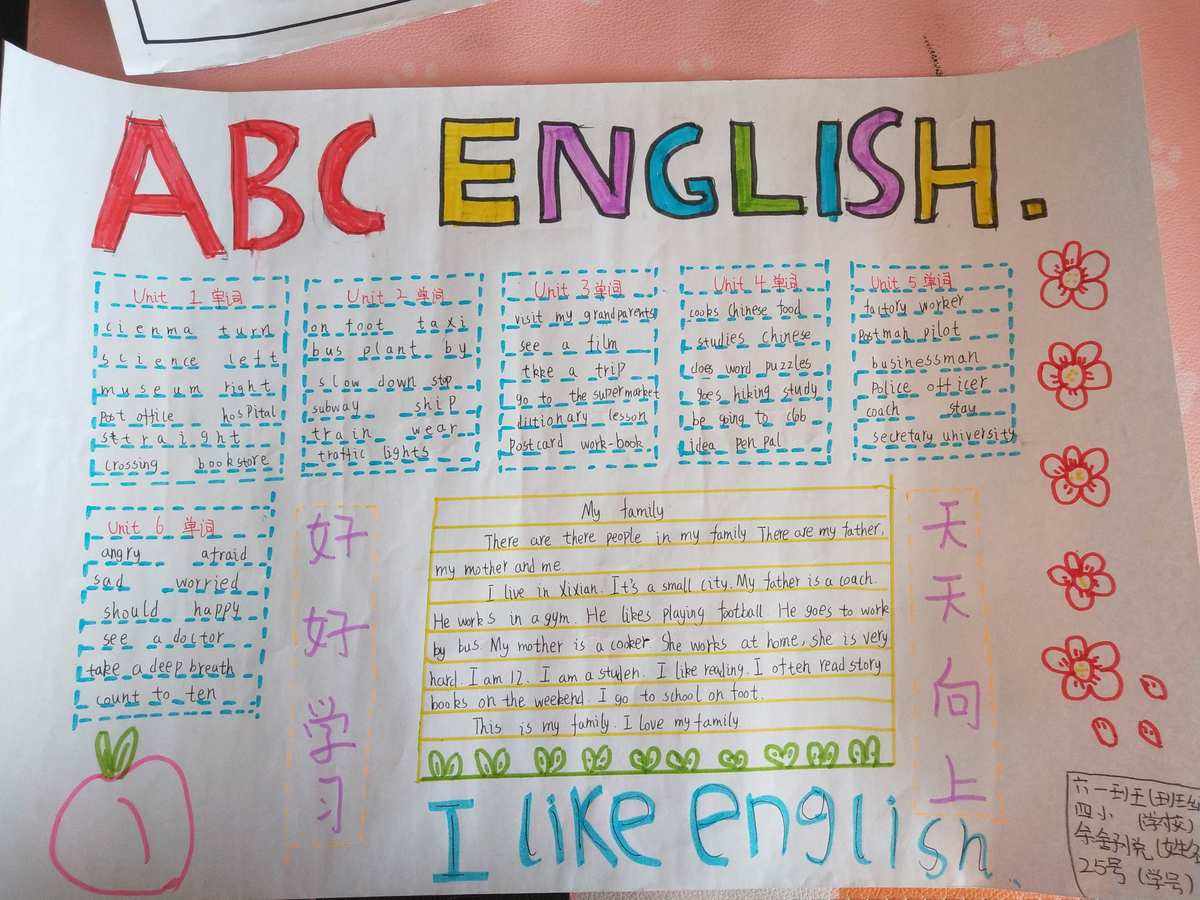 ABC ENGLISH.
Unit 1 单词
cienma turn
science left
museum right
Post office hospital
sttraight
crossing bookstore
Unit 2 单词
on foot taxi
bus plant by
slow down stop
subway ship
train wear
traffic lights
Unit 3 单词
visit my grandparents
see a film
tkke a trip
go to the supermarket
diltionary lesson
Postcard work-book
Unit 4 单词
cooks Chinese food
studies chinese
does word puzzles
goes hiking study
be going to clob
idea pen pal
Unit 5 单词
factory worker
Postman pilot
businessman
Police officer
coach stay
secretary university
Unit 6 单词
angry afraid
sad worried
should happy
see a doctor
take a deep breath
count to ten
好好学习
My family
There are there people in my family There are my father,
my mother and me.
I live in Xixian. It's a small city. My father is a coach.
He works in a gym. He likes playing football. He goes to work
by bus. My mother is a cooker She works at home, she is very
hard. I am 12. I am a studen. I like reading. I often read story
books on the weekend. I go to school on foot.
This is my family. I love my family
天天向上
I like english
六一班王(班级
四小 (学校)
25号 (学号)